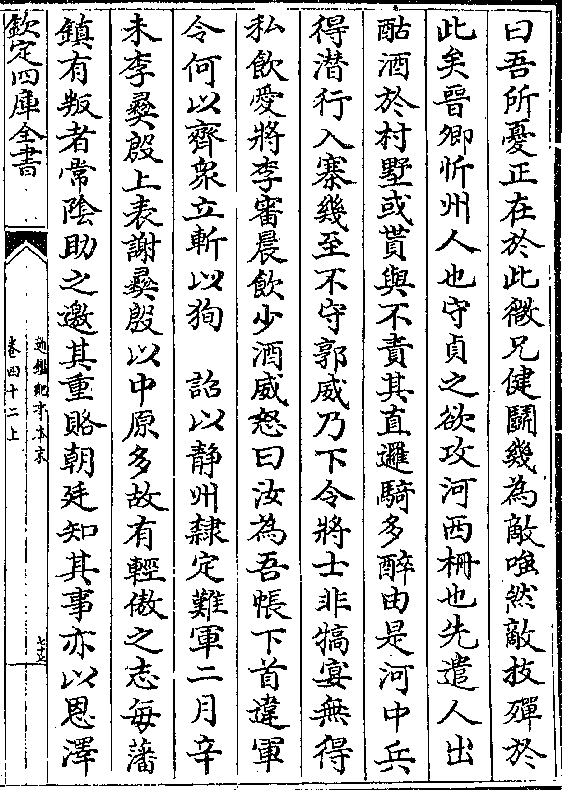 曰吾所憂正在於此微兄健鬭幾為敵嗤然敵技殫於
此矣晉卿忻州人也守貞之欲攻河西柵也先遣人出
酤酒於村墅或貰與不責其直邏騎多醉由是河中兵
得潛行入寨幾至不守郭威乃下令將士非犒宴無得
私飲愛將李審晨飲少酒威怒曰汝為吾帳下首違軍
令何以齊衆立斬以狥　詔以靜州隸定難軍二月辛
未李彝殷上表謝彝殷以中原多故有輕傲之志每藩
鎮有叛者常陰助之邀其重賂朝廷知其事亦以恩澤
欽定四庫全書
通鑑紀事本末
卷四十二上